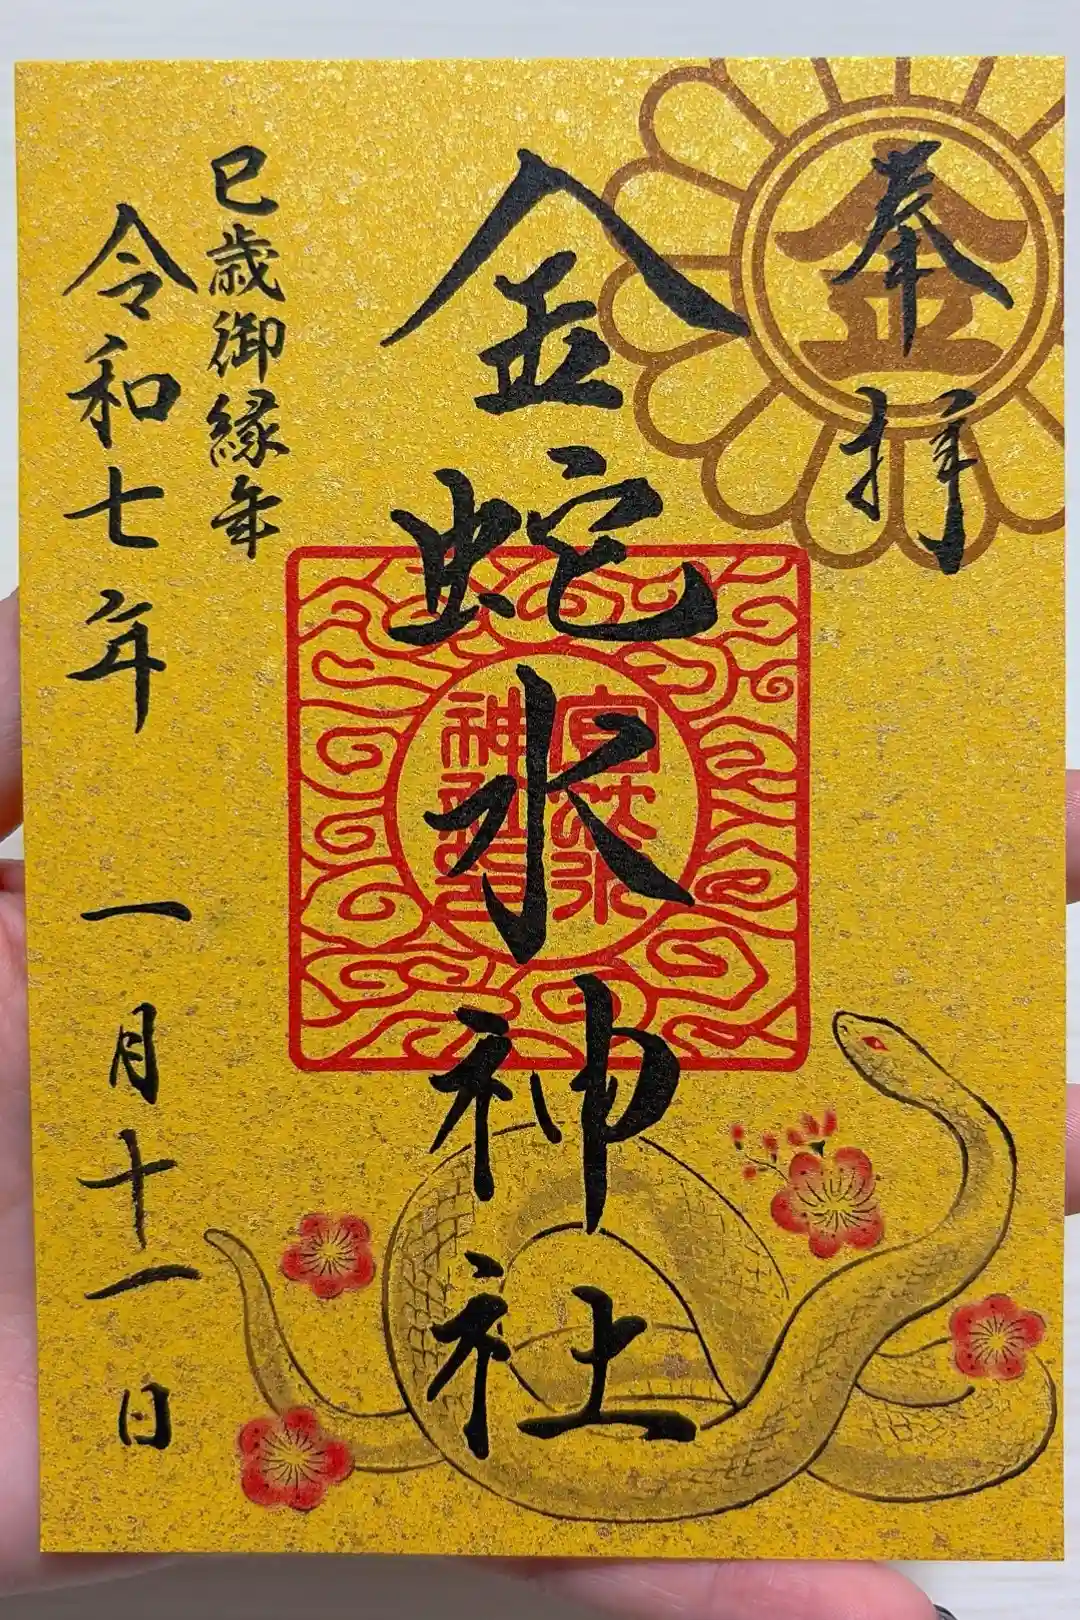 奉拝
金
金蛇水神社
宮蛇水
神社印
巳歳御縁年
令和七年 一月十一日